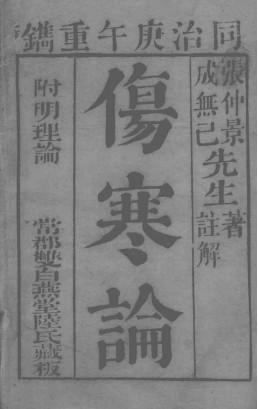 同治庚午年重鐫
張仲景先生著
成無己註解
傷寒論
附明理論
常郡雙白燕堂陸氏藏板